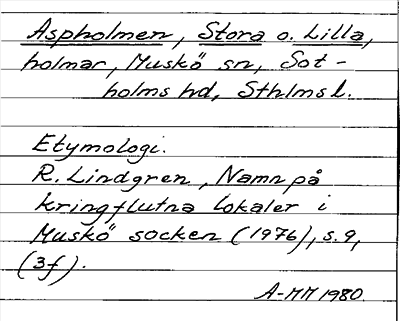 Aspholmen, Stora o. Lilla,
holmar, Muskö sn, Sot-
holms hd, Sthlms l.
Etymologi.
R. Lindgren, Namn på
kringflutna lokaler i
Muskö socken (1976), s. 9,
(3f).
A-MM 1980